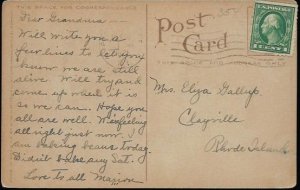 THIS SPACE FOR CORRESPONDENCE
Post
Card
U.S. POSTAGE
1 CENT 1
Dear Grandma
Will write you a
few lines to let you
know we are still
alive. Will try and
come up when it is
so we can. Hope you
all are well. We feeling
all right just now. I
am baking beans today.
Didn't bake any Sat.
Love to all Marion
Mrs. Elyza Gallup
Clayville
Rhode Island